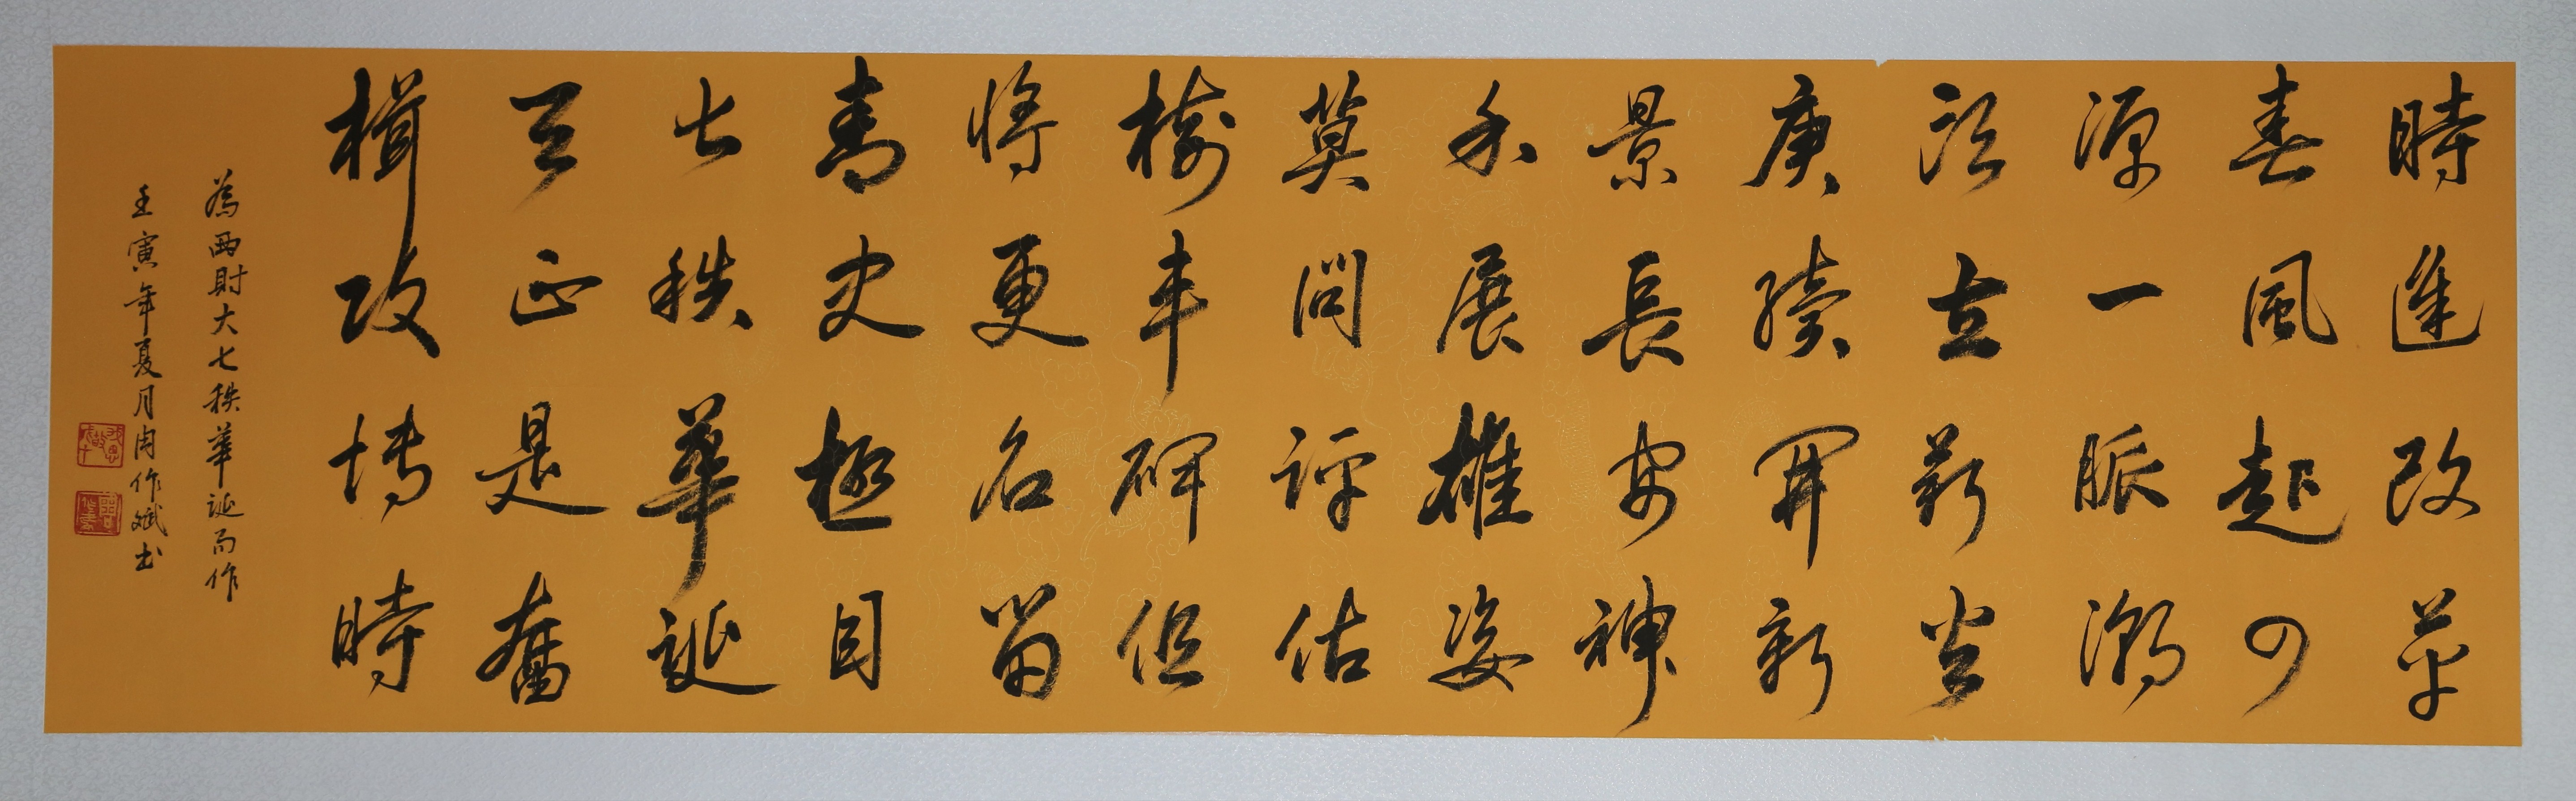 時進改革
春風起四
源一脈潮
頭立薪
庚續開新
景長安神
禾展雄姿
莫問評估
樹丰碑但
將更名留
青史極目
七秩華誕
天正是奮
楫攻博時
為西財大七秩華誕而作
壬寅年夏月周作斌书